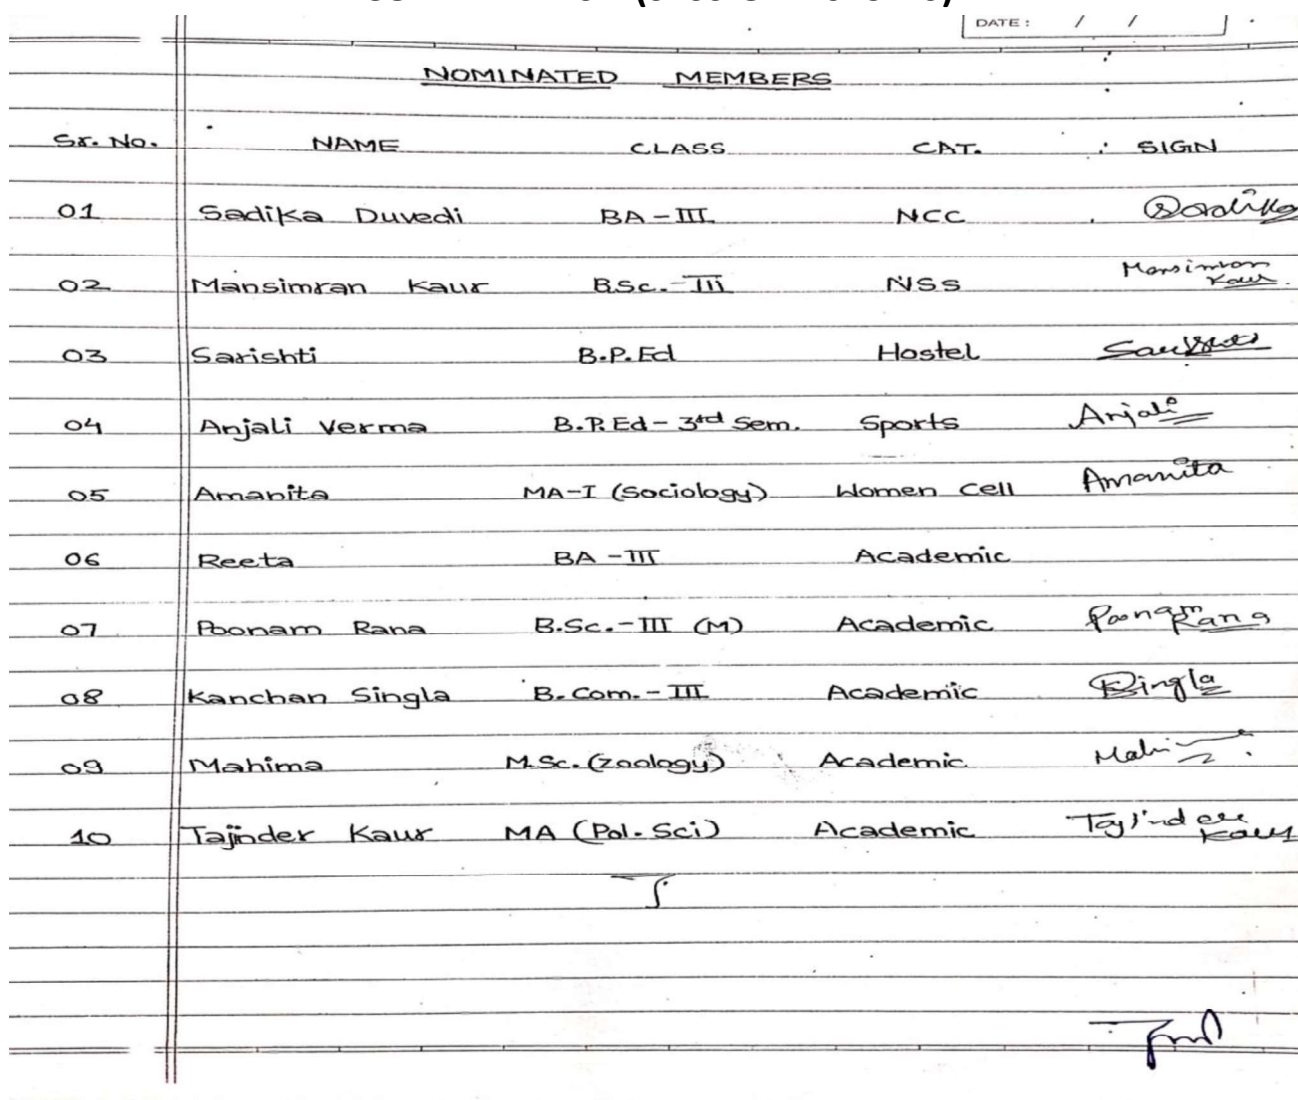 DATE : / /
NOMINATED MEMBERS
Sr. No. NAME CLASS CAT. SIGN
01 Sadika Duvedi BA-III NCC Sadika
02 Mansimran Kaur B.Sc.-III NSS Mansimran Kaur
03 Sarishti B.P.Ed Hostel
04 Anjali Verma B.P.Ed - 3rd Sem. Sports Anjali
05 Amanita MA-I (Sociology) Women Cell Amanita
06 Reeta BA-III Academic
07 Poonam Rana B.Sc.-III (M) Academic Poonam Rana
08 Kanchan Singla B.Com.-III Academic Singla
09 Mahima M.Sc. (Zoology) Academic
10 Tajinder Kaur MA (Pol. Sci) Academic Tajinder Kaur